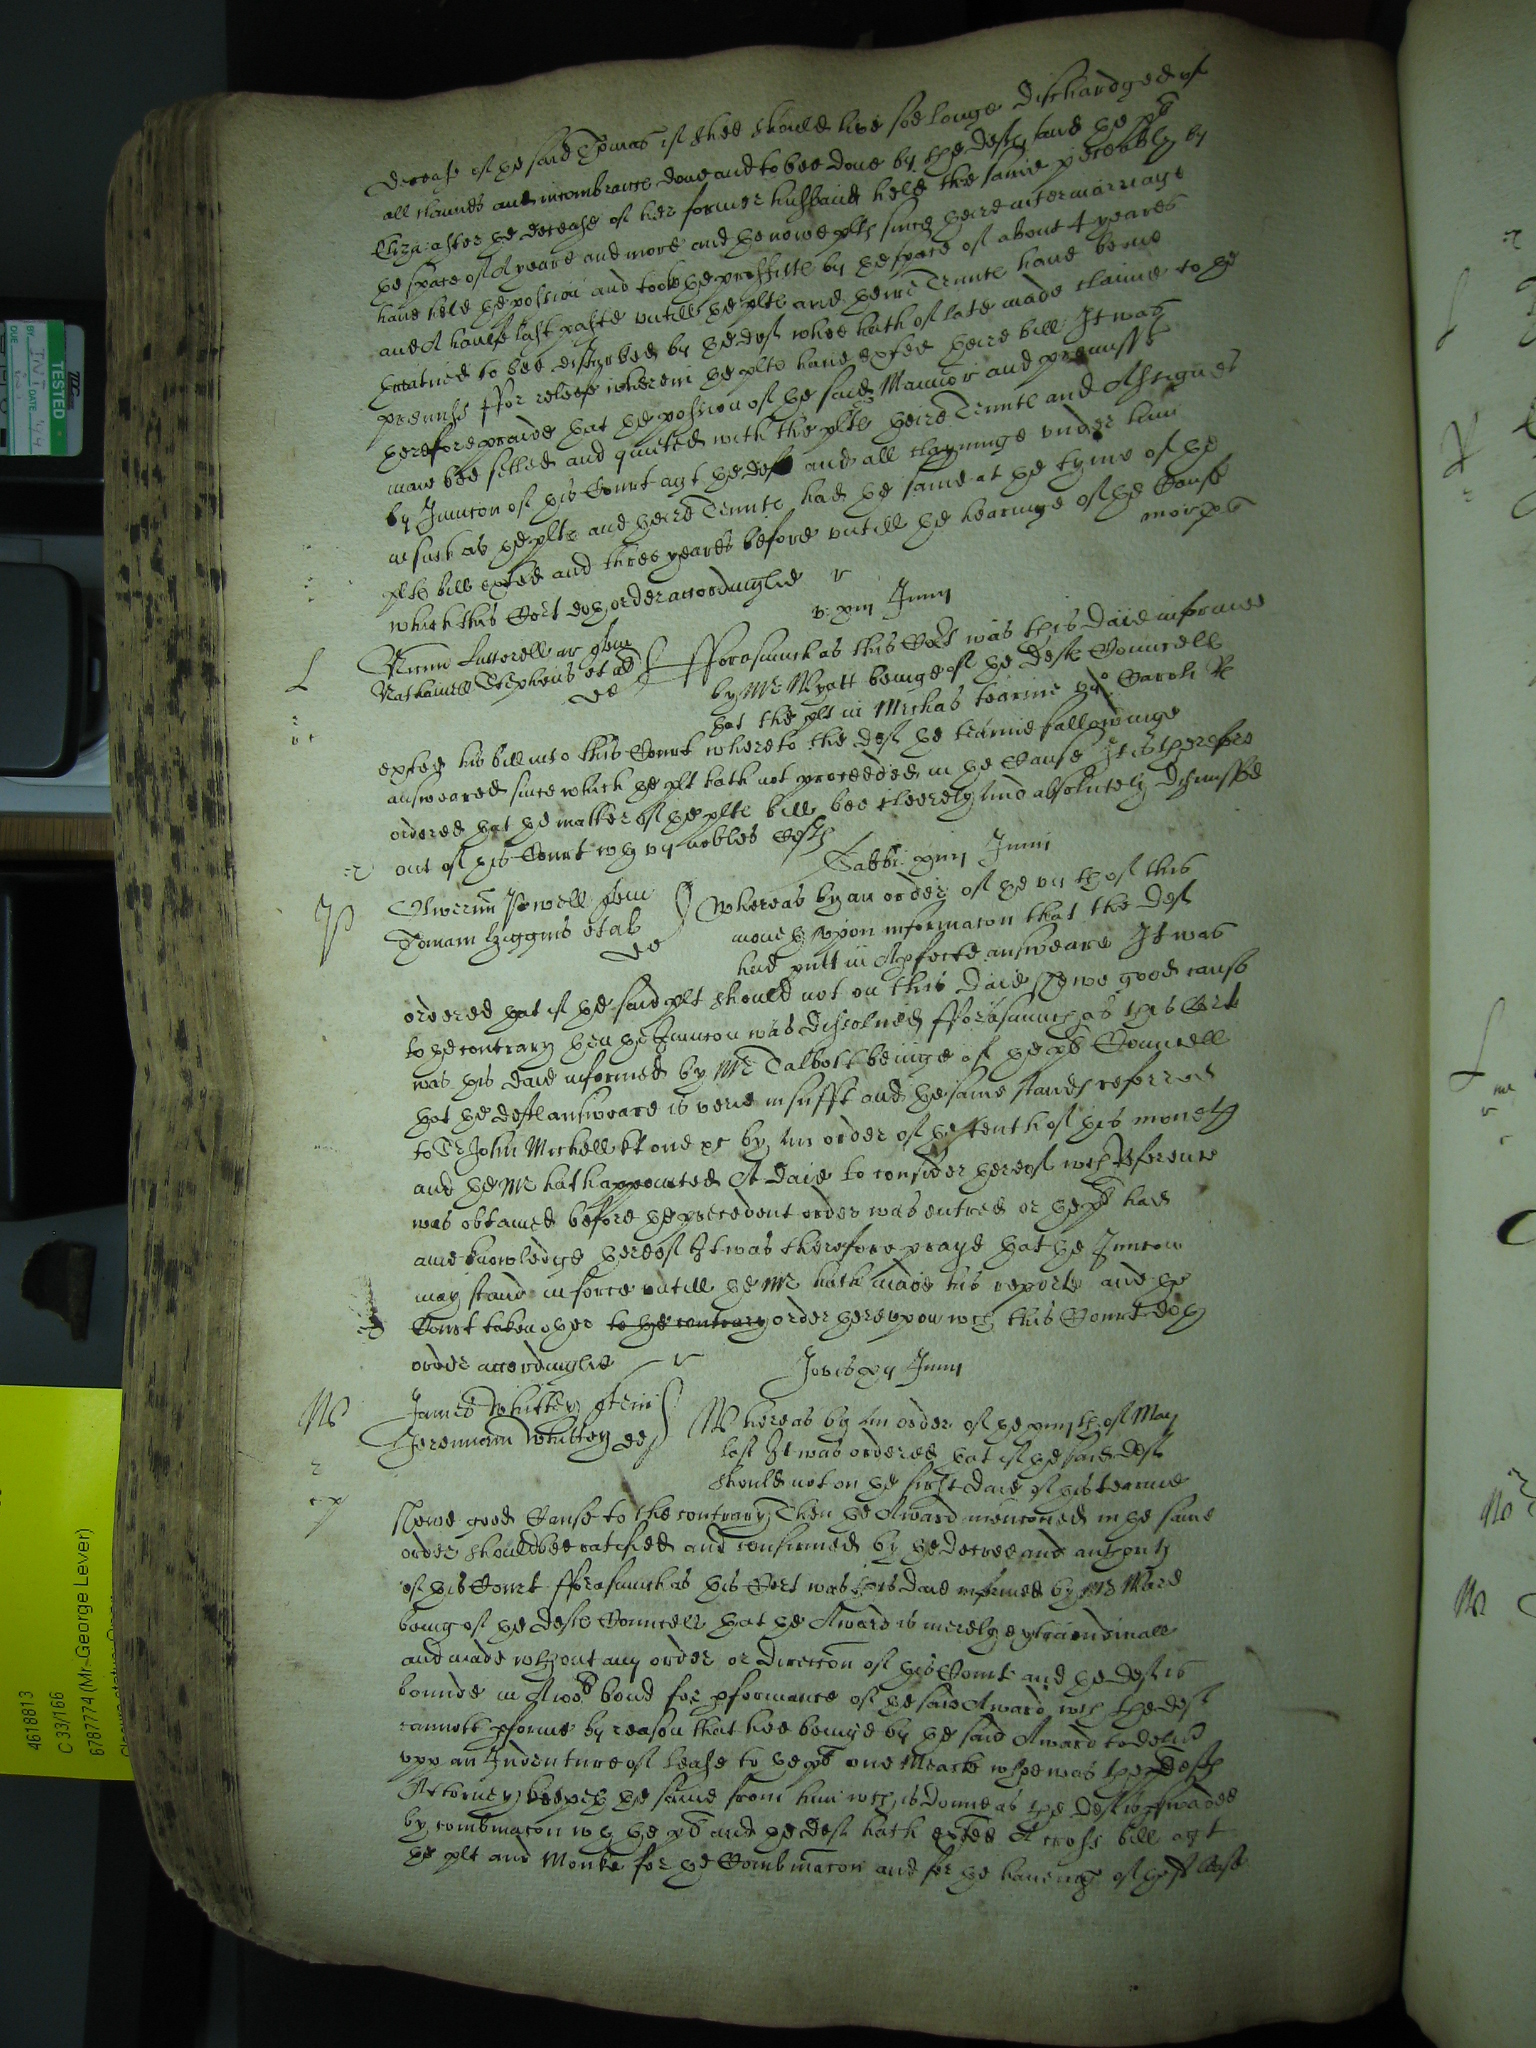 decease of the said Thomas if shee should live soe longe dischardged of
all claimes and incombrance done and to bee done by the deft and the
Eliza: after the decease of her former husband held the same peceably by
the space of A yeare and more and the nowe plts since theire intermarriage
have held the possion and tooke the proffitts by the space of about 4 yeares
and A haulfe last paste untill the plts and theire Tennts have beene
to bee disturbed by the deft whoe hath of late made claime to the
premisses ffor releefe wherein the plts have exhibited theire bill It was
therefore praied that the possion of the said Mannor and premisses
maie bee setled and quieted with the plts theire Tennts and Assignes
by Iniunccon of this Court agt the deft and all clayminge under him
in such as the plts and theire Tennts had the same at the tyme of the
plts bill exhibited and three yeares before untill the hearinge of the Cause
which this Cort doth order accordinglie
xiii Junii
Luttrell ar quer
Nathaniell Stephens et al
def
Fforasmuch as this Court was this daie informed
by Mr Wyatt beinge of the defts Councell
that the plt in Michas tearme Caroli R
exhibited his bill into this Court whereto the deft the tearme followinge
answeared since which the plt hath not proceeded in the Cause It is therefore
ordered that the matter of the plts bill bee cleerely and absolutely dismissed
out of this Court with nobles Costs
Sabbi Junii
Oliverum Powell quer
Thomam Higgins et al
def
Whereas by an order of the vii th of this
moneth uppon informacon that the deft
had putt in A perfecte answeare It was
ordered that if the said plt should not on this daie shewe good cause
to the contrary then the Iniunccon was dissolved Fforasmuch as this Cort
was this daie informed by Mr Talbott beinge of the plts Councell
that the defts answeare is verie insufft and the same stands referred
to Sr John Michell kt one &c by an order of the tenth of this moneth
and the Mr hath appointed A daie to consider thereof wch reference
was obtained before the precedent order was entred or the plt had
anie knowledge thereof It was therefore prayd that the Iniunccon
may stand in force untill the Mr hath made his reporte and the
Court taken other to the contrary order thereupon wch this Court doth
order accordinglie
Jovis Junii
James Whittey quer
Jeremiam Whittey def
Whereas by an order of the th of May
last It was ordered that if the said deft
should not on the first daie of this tearme
shewe good Cause to the contrary Then the Award mencioned in the same
order should bee ratified and confirmed by the decree and authority
of this Court Fforasmuch as this Cort was this daie informed by Mr Ward
being of the defts Councell that the Award is meerely extraiudiciall
and made without any order or direccon of this Court and the deft is
bounde in A bond for pformance of the said Award wch the deft
cannott pforme by reason that hee beinge by the said Award to deliver
upp an Indenture of lease to the plt one whoe was the defts
Attorney keepeth the same from him wch is donne as the deft is
by combinacon with the plt and the deft hath exhibited A cross bill agt
the plt and Monke for the Combinacon and for the havinge of the lease
TESTED
4618813
C 33/166
6787774 (Mr George Lever)